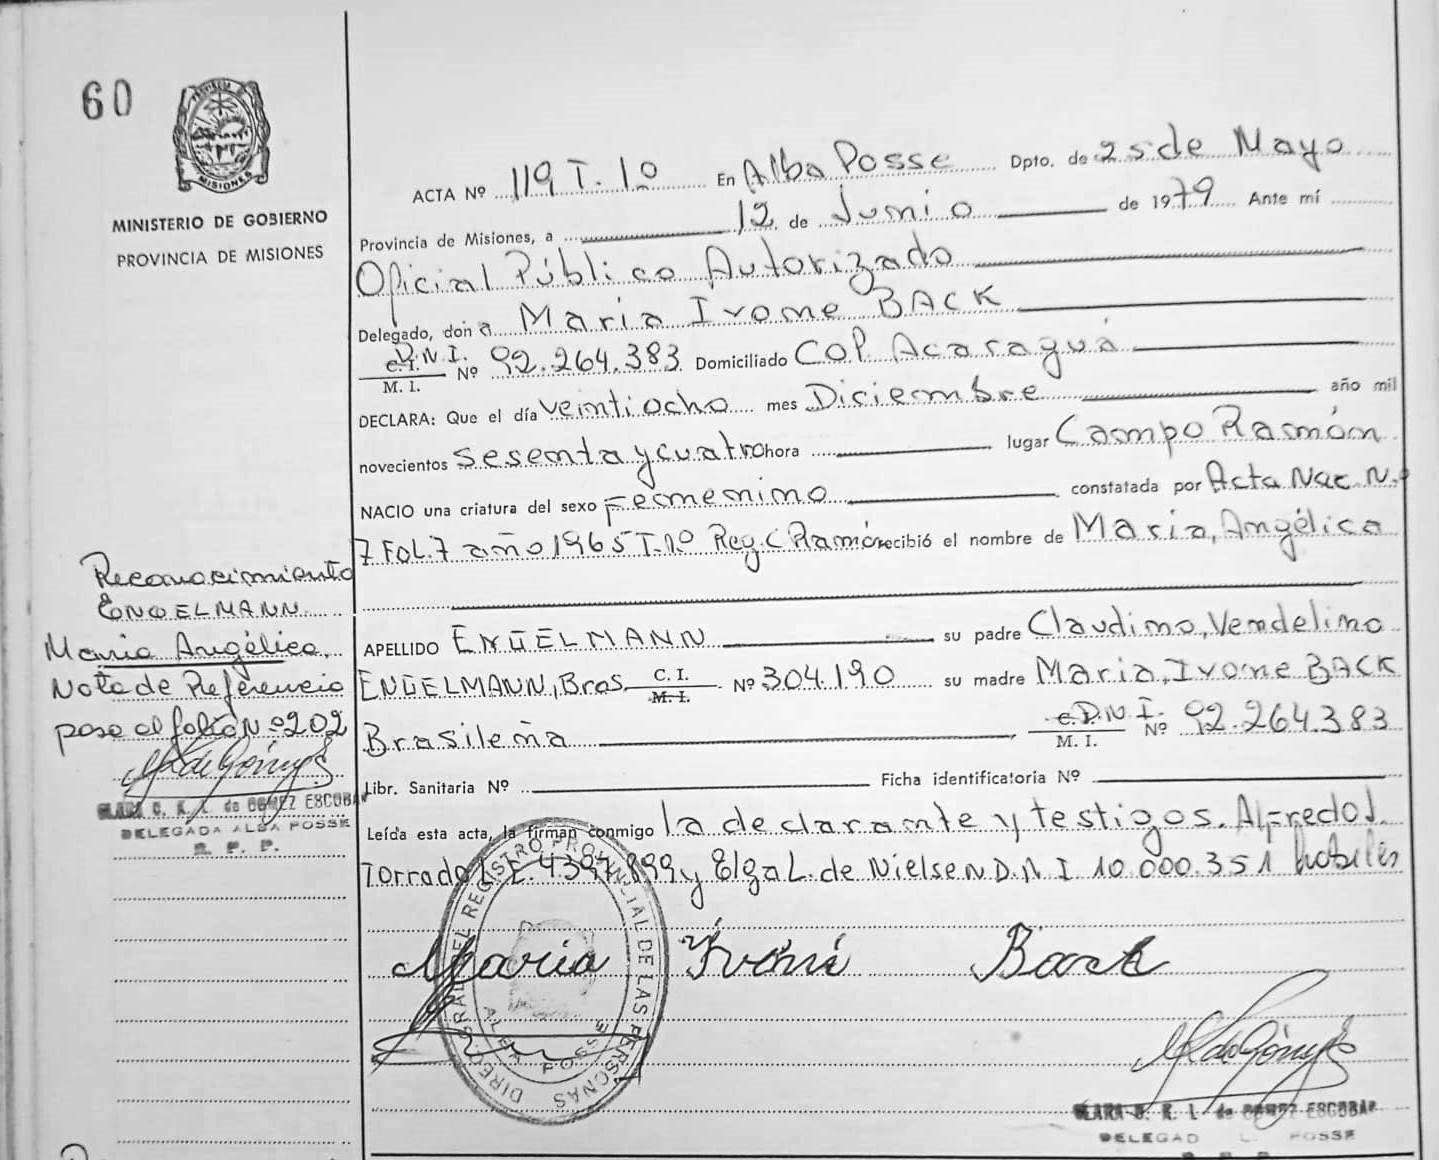 60
PROVINCIA DE
MISIONES
MINISTERIO DE GOBIERNO
PROVINCIA DE MISIONES
ACTA Nº 119 T. 1º En Alba Posse Dpto. de 25 de Mayo
Provincia de Misiones, a 12 de Junio de 1979 Ante mí
Oficial Público Autorizado
Delegado, don a Maria Ivone BACK
D.N.I.
C.I.
M. I. Nº 92.264.383 Domiciliado Col. Acaraguá
DECLARA: Que el día veintiocho mes Diciembre año mil
novecientos sesenta y cuatro hora lugar Campo Ramón
NACIO una criatura del sexo Femenino constatada por Acta Nac. N.º
7 Fol. 7 año 1965 T.1º Reg. C. Ramón recibió el nombre de Maria, Angélica
APELLIDO ENGELMANN su padre Claudino, Vendelino
ENGELMANN, Bras. C. I.
M. I. Nº 304.190 su madre Maria, Ivone BACK
Brasileña C. D.N.I.
M. I. Nº 92.264.383
Libr. Sanitaria Nº Ficha identificatoria Nº
Leída esta acta, la firman conmigo la declarante y testigos. Alfredo J.
Torrado L.E. 4397.899 y Elga L. de Nielsen D.N.I 10.000.351 habiles
Maria Ivoni Back
Reconocimiento
ENGELMANN
Maria Angélica,
Nota de Referencia
pasa al folio Nº 202
CLARA C. K. L. de GOMEZ ESCOBAR
DELEGADA ALBA POSSE
R. P. P.
DIREC. GRAL. DEL REGISTRO PROVINCIAL DE LAS PERSONAS
ALBA POSSE
CLARA C. K. L. de GOMEZ ESCOBAR
DELEGAD POSSE